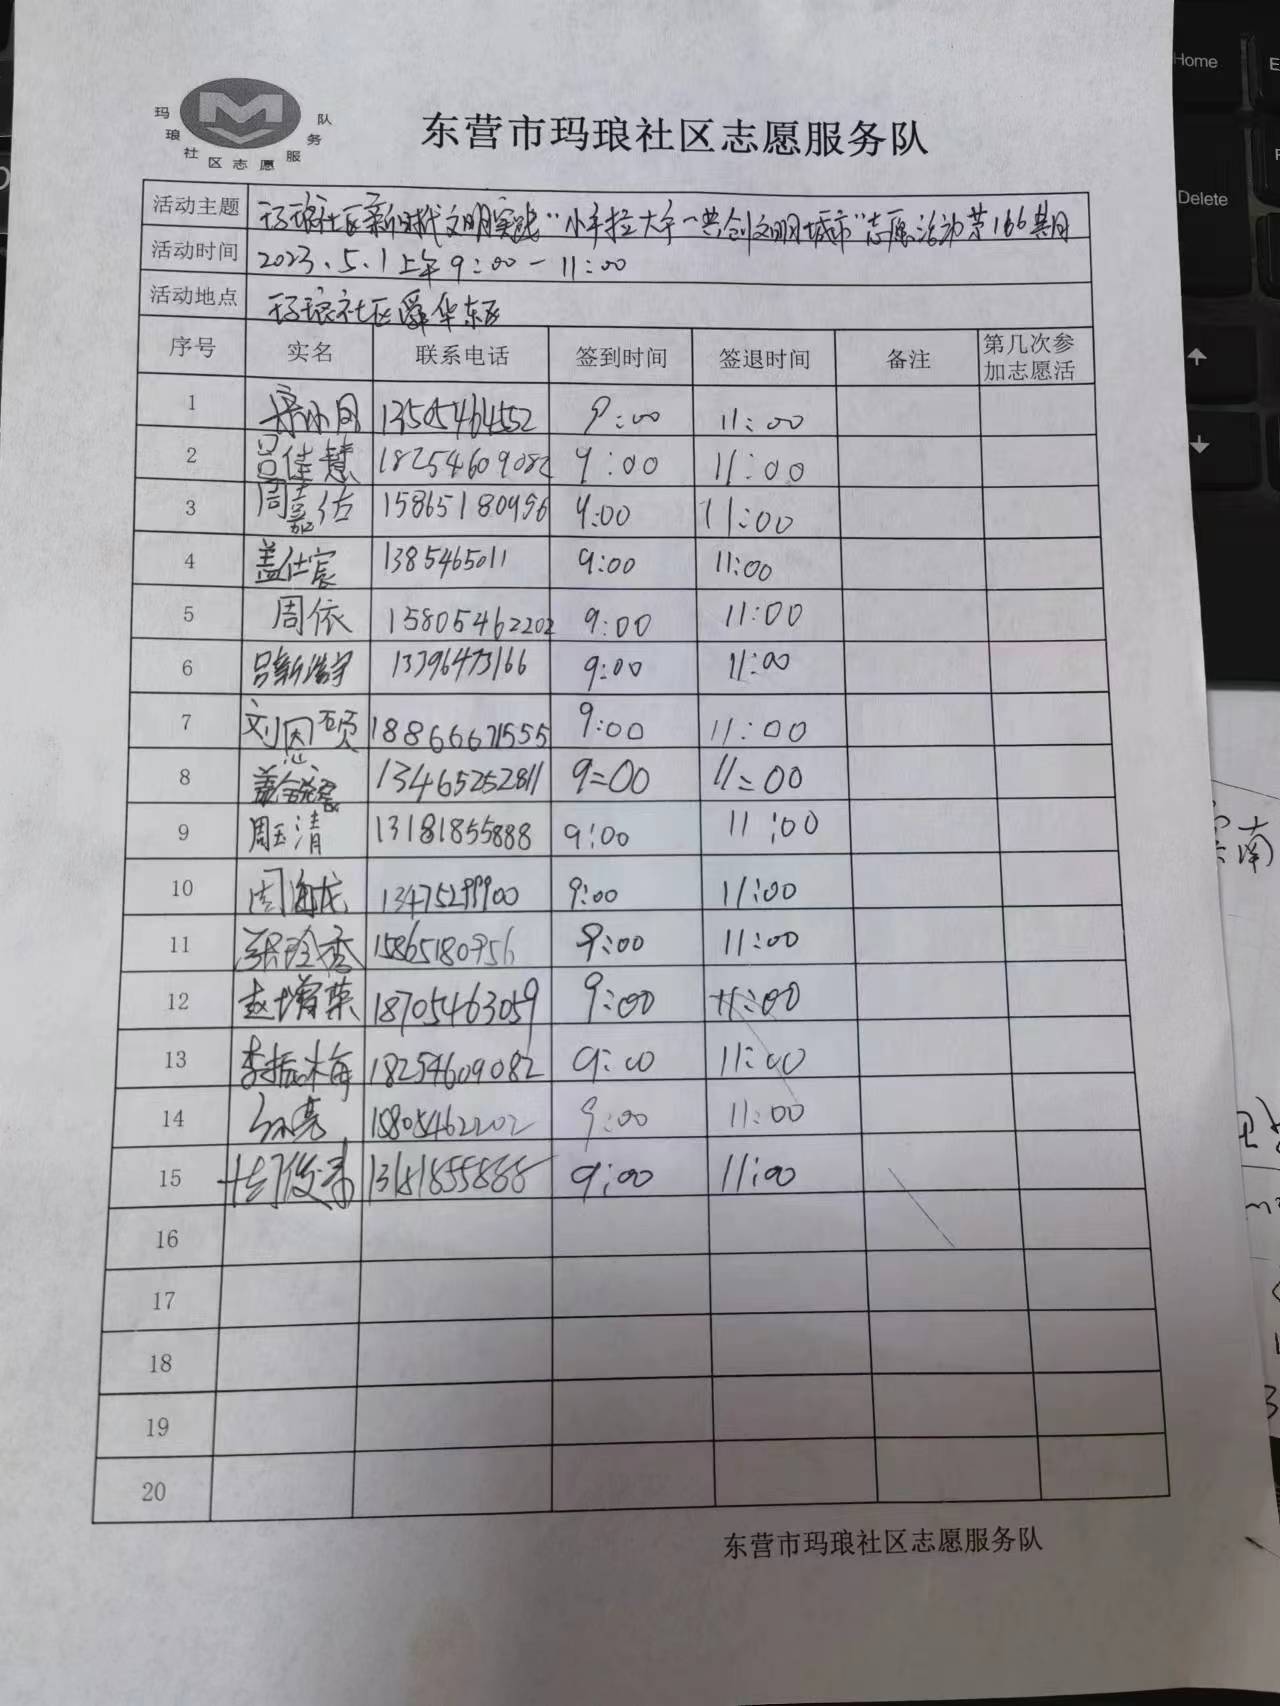 玛琅社区志愿服务队
东营市玛琅社区志愿服务队
活动主题 玛琅社区新时代文明实践“小手拉大手一共创文明城市”志愿活动第166期
活动时间 2023.5.1上午9:00-11:00
活动地点 玛琅社区舜华东区
序号 实名 联系电话 签到时间 签退时间 备注 第几次参加志愿活
1 13505464552 9:00 11:00
2 吕佳慧 18254609082 9:00 11:00
3 周嘉佑 15865180956 9:00 11:00
4 盖仕宸 1385465011 9:00 11:00
5 周依 15805462202 9:00 11:00
6 吕新浩宇 13396473166 9:00 11:00
7 刘恩硕 18866671555 9:00 11:00
8 13465252811 9=00 11=00
9 周玉清 13181855888 9:00 11:00
10 周海龙 13475299900 9:00 11:00
11 张玲秀 15865180956 9:00 11:00
12 赵增荣 18705463059 9:00 11:00
13 李振梅 18254609082 9:00 11:00
14 15805462202 9:00 11:00
15 13181855888 9:00 11:00
16
17
18
19
20
东营市玛琅社区志愿服务队
Home
Delete